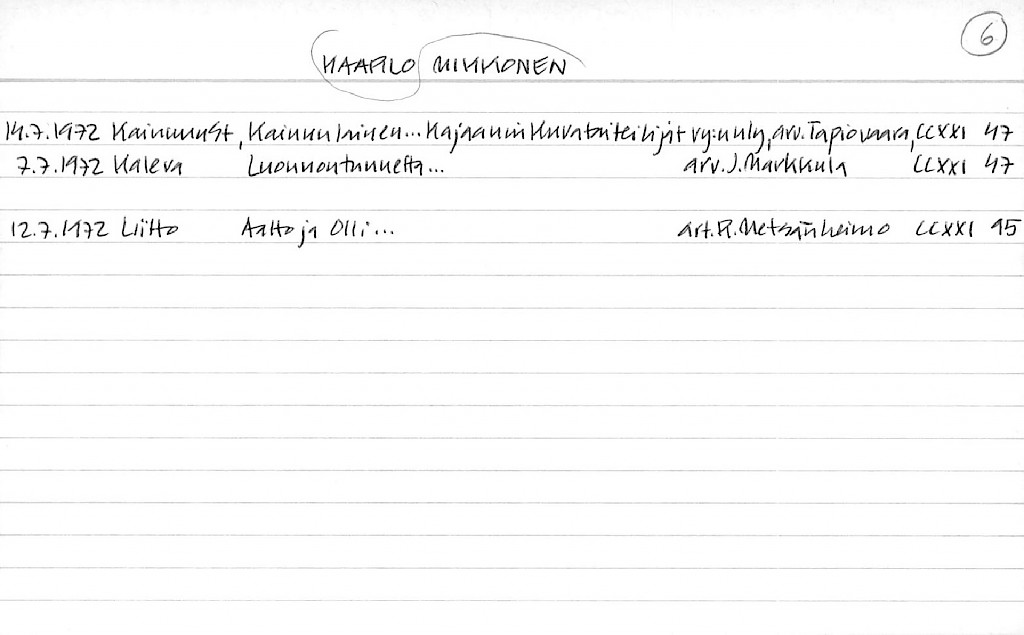 6
KAARLO MIKKONEN
14.7.1972 Kainuun St, Kainuulainen... Kajaanin Kuvataiteilijat ry:n nly, arv. Tapiovaara, CCXXI 47
7.7.1972 Kaleva Luonnontunnetta... arv. J. Markkula CCXXI 47
12.7.1972 Liitto Aatto ja Olli... art. R. Metsänheimo CCXXI 95